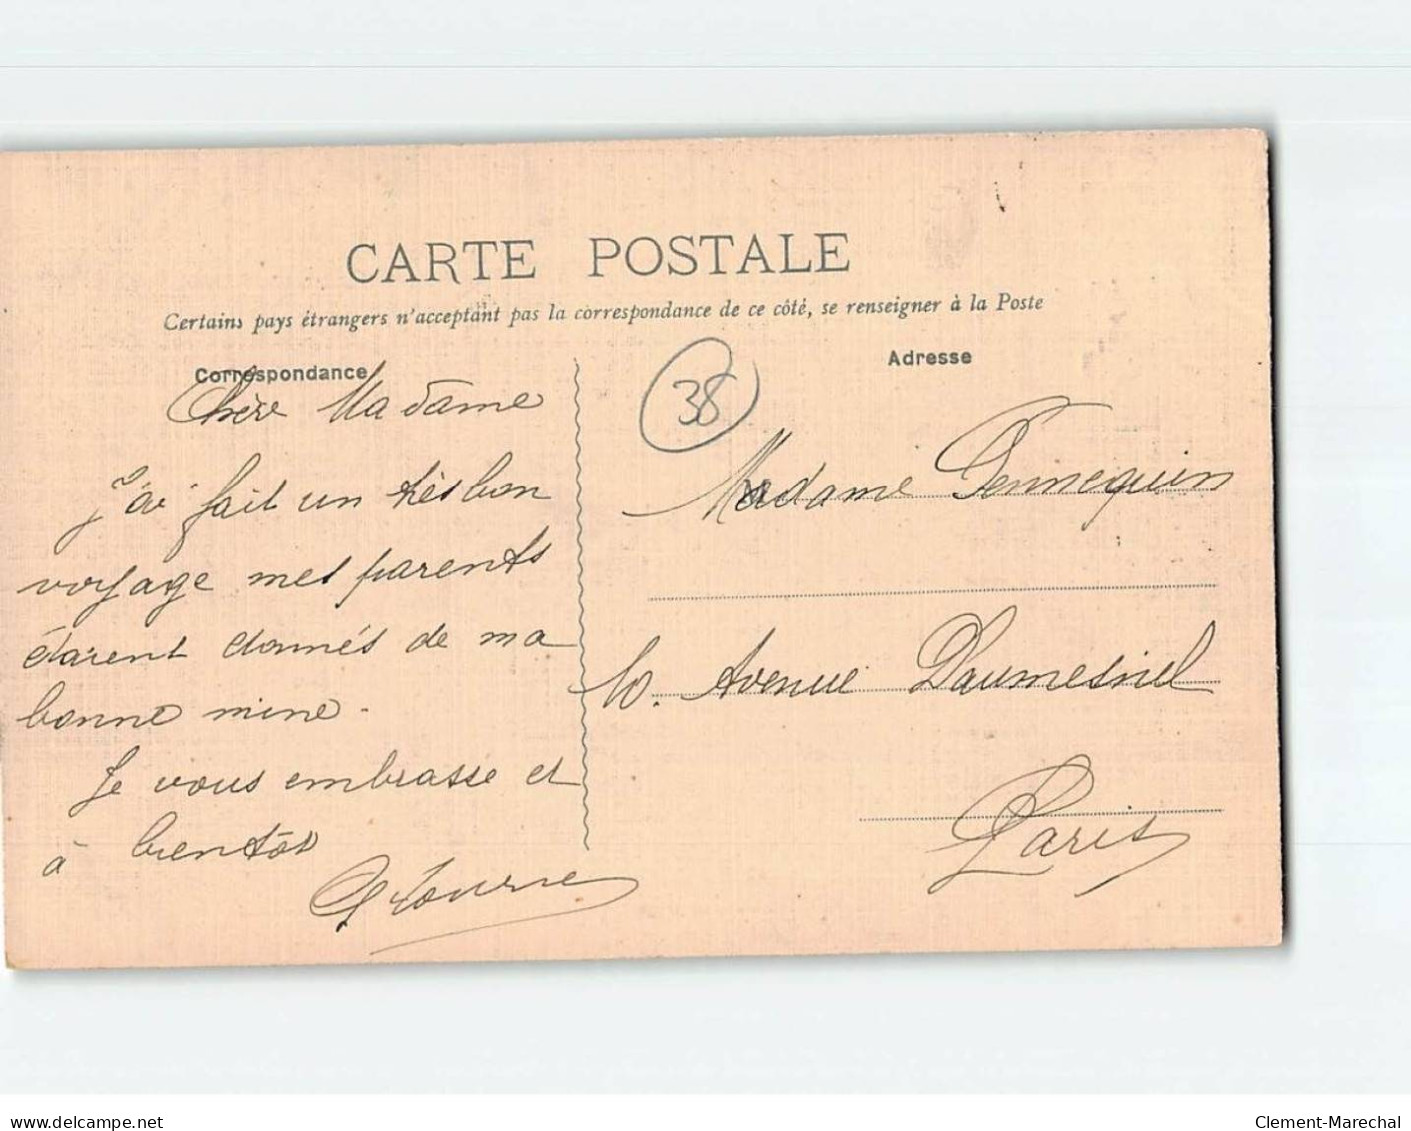 CARTE POSTALE
Certains pays étrangers n'acceptant pas la correspondance de ce côté, se renseigner à la Poste
Correspondance
Chère Madame
J'ai fait un très bon
voyage mes parents
étaient étonnés de ma
bonne mine.
Je vous embrasse et
à bientôt
38
Adresse
Madame Pennequin
10. Avenue Daumesnil
Paris
delcampe.net
Clement-Marechal